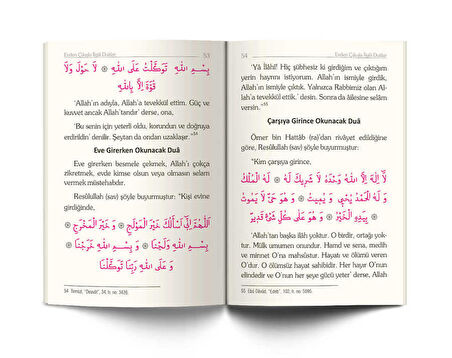 Evden Çıkışla İlgili Dualar 53
بِسْمِ اللّٰهِ تَوَكَّلْتُ عَلَى اللّٰهِ ۞ لَا حَوْلَ وَلَا
قُوَّةَ إِلَّا بِاللّٰهِ
'Allah'ın adıyla, Allah'a tevekkül ettim. Güç ve
kuvvet ancak Allah'tandır' derse, ona,
'Bu senin için yeterli oldu, korundun ve doğruya
erdirildin' denilir. Şeytan da ondan uzaklaşır."⁵⁴
Eve Girerken Okunacak Duâ
Eve girerken besmele çekmek, Allah'ı çokça
zikretmek, evde kimse olsun veya olmasın selam
vermek müstehabdır.
Resûlullah (sav) şöyle buyurmuştur: "Kişi evine
girdiğinde,
اَللّٰهُمَّ إِنِّي أَسْأَلُكَ خَيْرَ الْمَوْلَجِ ۞ وَ خَيْرَ الْمَخْرَجِ ۞
بِسْمِ اللّٰهِ وَلَجْنَا ۞ وَ بِسْمِ اللّٰهِ خَرَجْنَا ۞
وَ عَلَى اللّٰهِ رَبِّنَا تَوَكَّلْنَا
54 Tirmizî, "Deavât", 34, h. no: 3426.
54 Evden Çıkışla İlgili Dualar
'Yâ İlâhî! Hiç şübhesiz ki girdiğim ve çıktığım
yerin hayrını istiyorum. Allah'ın ismiyle girdik,
Allah'ın ismiyle çıktık. Yalnızca Rabbimiz olan Al-
lah'a tevekkül ettik.' desin. Sonra da âilesine selâm
versin."⁵⁵
Çarşıya Girince Okunacak Duâ
Ömer bin Hattâb (ra)'dan rivâyet edildiğine
göre, Resûlullah (sav) şöyle buyurmuştur:
"Kim çarşıya girince,
لَا إِلٰهَ إِلَّا اللّٰهُ وَحْدَهُ لَا شَرِيكَ لَهُ ۞ لَهُ الْمُلْكُ
وَ لَهُ الْحَمْدُ يُحْيِي وَ يُمِيتُ ۞ وَ هُوَ حَيٌّ لَا يَمُوتُ
۞ بِيَدِهِ الْخَيْرُ ۞ وَ هُوَ عَلَى كُلِّ شَيْءٍ قَدِيرٌ
'Allah'tan başka ilâh yoktur. O birdir, ortağı yok-
tur. Mülk umumen onundur. Hamd ve sena, medih
ve minnet O'na mahsûstur. Hayatı ve ölümü veren
O'dur. O ölümsüz hayat sahibidir. Her hayır O'nun
elindedir ve O'nun her şeye gücü yeter' derse, Allah
55 Ebû Dâvûd, "Edeb", 103, h. no: 5096.